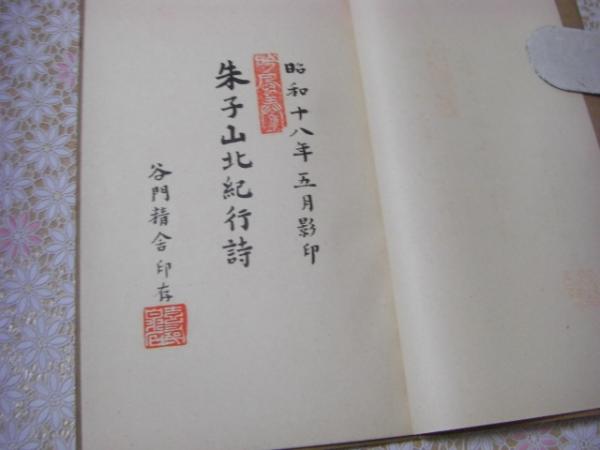 昭和十八年五月影印
朱子山北紀行詩
谷門精舍印存